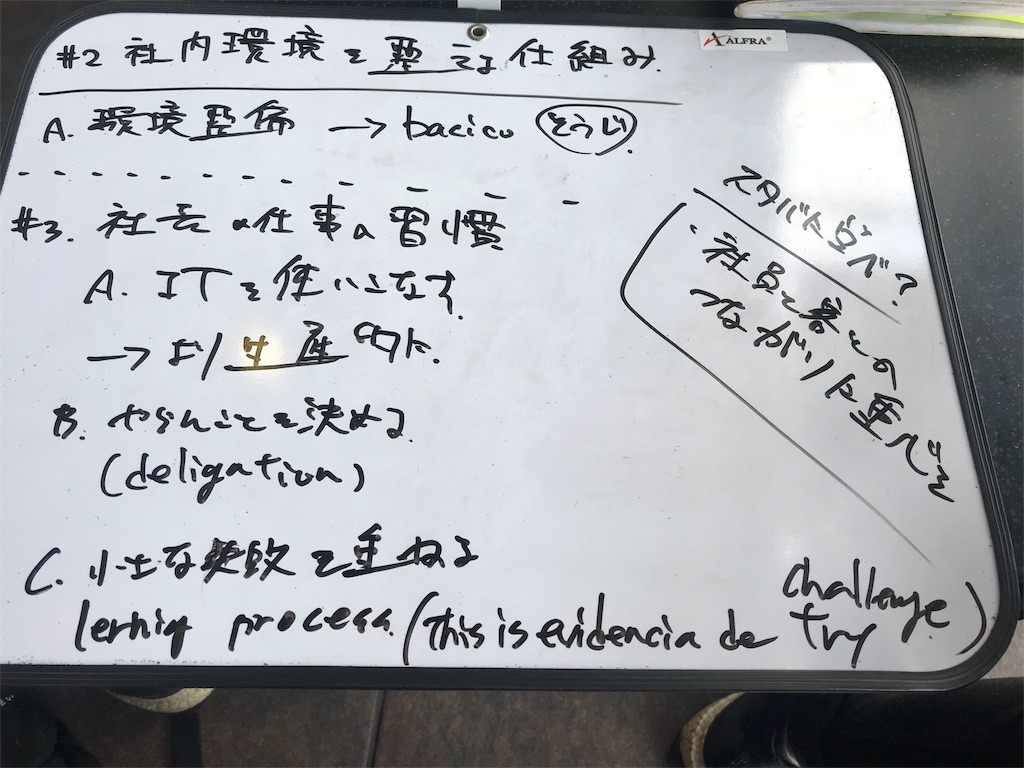 ALFRA®
#2 社内環境を整える仕組み.
A. 環境整備 → bacico そうじ.
#3. 社長の仕事の習慣
A. ITを使いこなす.
→ より生産的に.
B. やらんことを決める.
(deligation)
C. 小さな失敗を重ねる
lerning process. (this is evidencia de challenge. try)
スタバに学べ?
・社員と客との
つながりに重心を